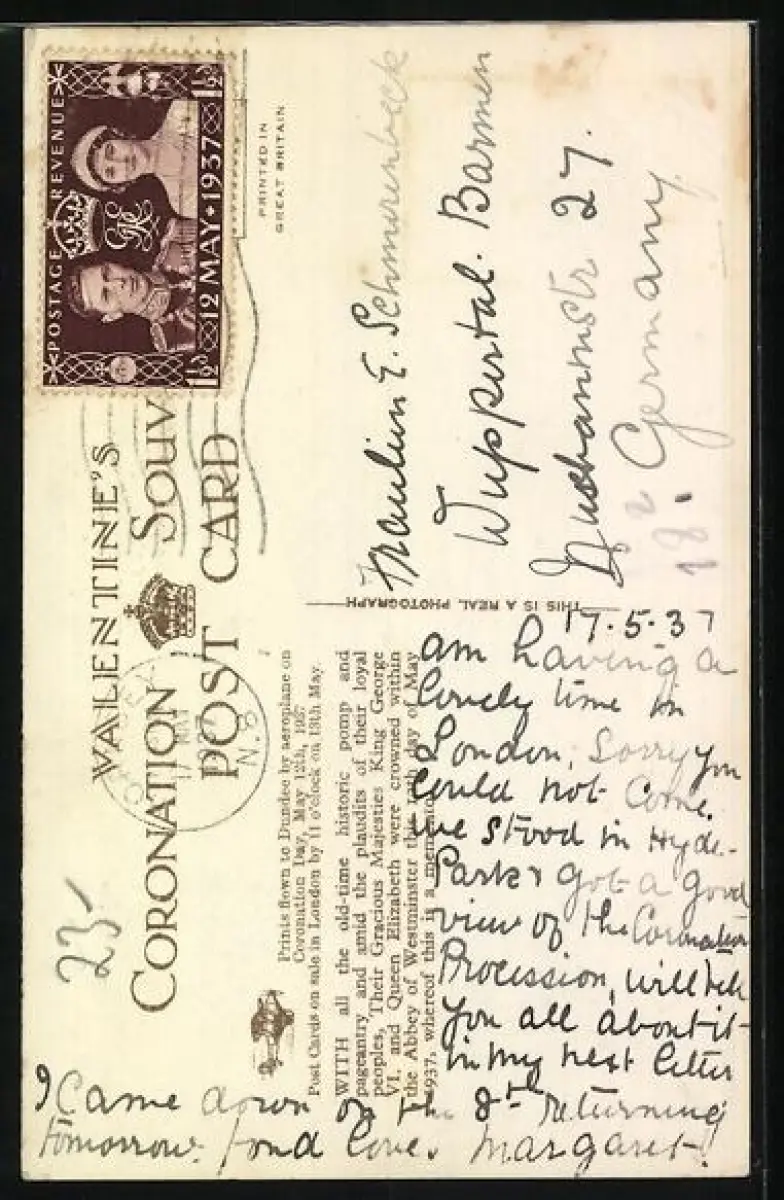 VALENTINE'S
CORONATION SOUV
POST CARD
POSTAGE REVENUE
1½D 12 MAY 1937 1½D
PRINTED IN
GREAT BRITAIN
23
MAY
N.8
Prints flown to Dundee by aeroplane on
Coronation Day, May 12th, 1937
Post Cards on sale in London by 11 o'clock on 13th May.
WITH all the old-time historic pomp and
pageantry and amid the plaudits of their loyal
peoples, Their Gracious Majesties King George
VI. and Queen Elizabeth were crowned within
the Abbey of Westminster this 12th day of May
1937, whereof this is a
THIS IS A REAL PHOTOGRAPH
Fraulein E. Schmorenbeck
Wuppertal. Barmen
27.
Germany
18.
17.5.37
am having a
lovely time in
London, Sorry you
could not come.
we stood in Hyde-
Park & got a good
view of the Coronation
Procession, will tell
you all about it
in my next letter
I came down on the 8th returning
tomorrow. fond love. Margaret.